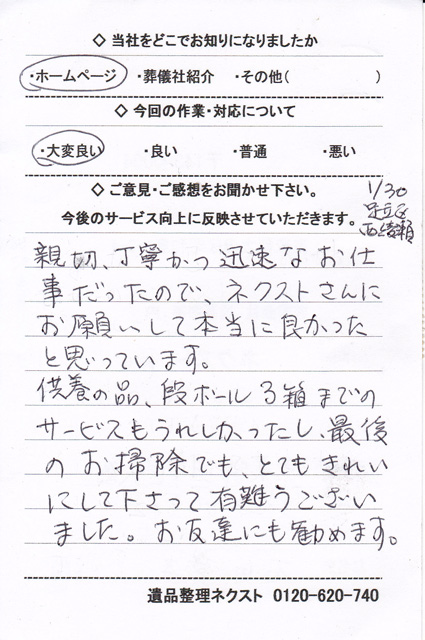 ◇ 当社をどこでお知りになりましたか
・ホームページ ・葬儀社紹介 ・その他( )
◇ 今回の作業・対応について
・大変良い ・良い ・普通 ・悪い
◇ ご意見・ご感想をお聞かせ下さい。
今後のサービス向上に反映させていただきます。
1/30
足立区
西綾瀬
親切、丁寧かつ迅速なお仕
事だったので、ネクストさんに
お願いして本当に良かった
と思っています。
供養の品、段ボール3箱までの
サービスもうれしかったし、最後
のお掃除でも、とてもきれい
にして下さって有難うござい
ました。お友達にも勧めます。
遺品整理ネクスト 0120-620-740